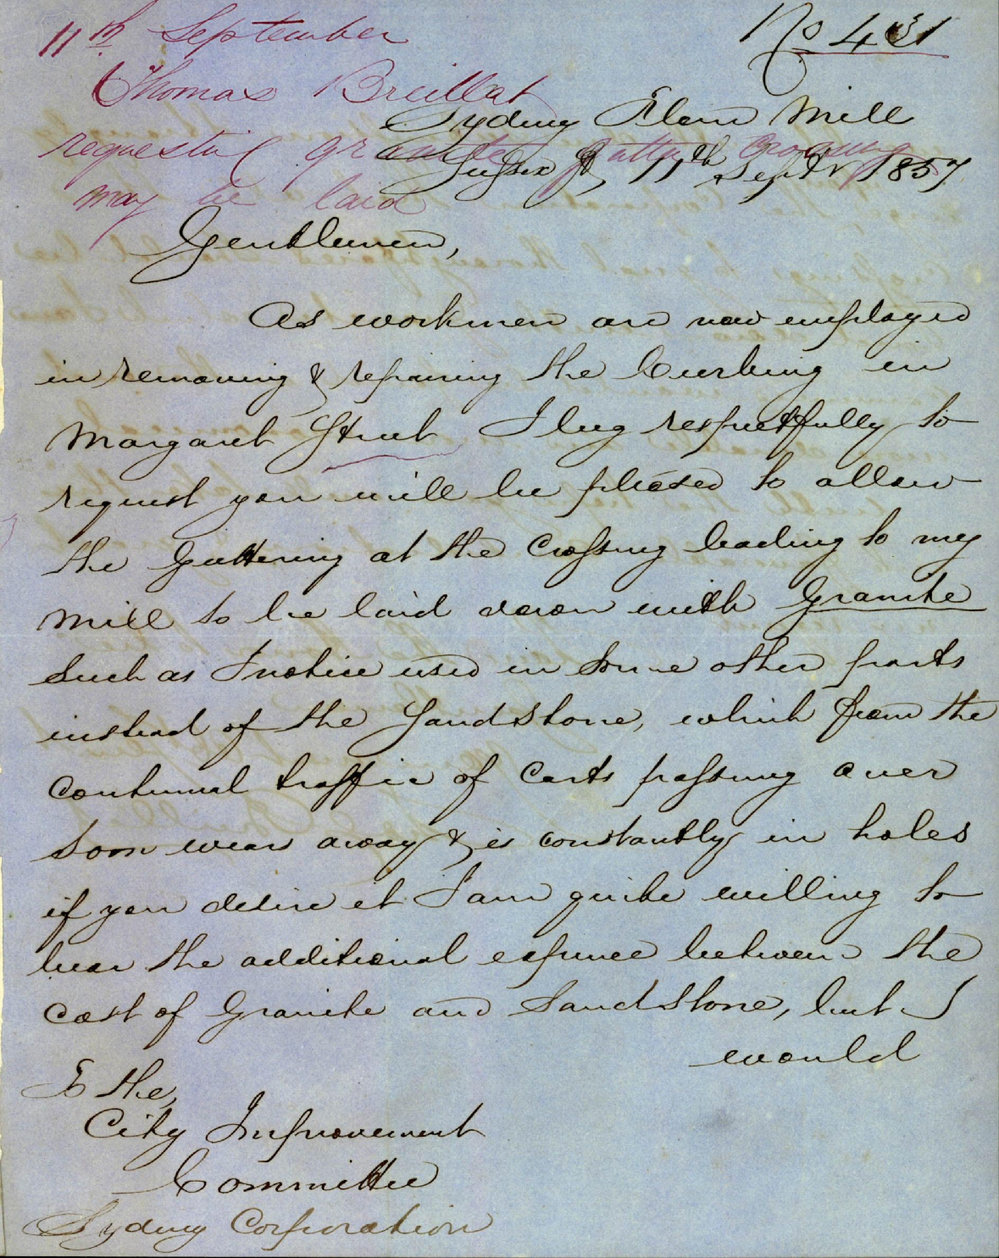 No 431
11th September
Thomas Breillat
requesting granite gutter crossing
may be laid
Sydney Flour Mill
Sussex St, 11th Septr 1857
Gentlemen,
As workmen are now employed
in removing & repairing the Curbing in
Margaret Street I beg respectfully to
request you will be pleased to allow
the Guttering at the Crossing leading to my
Mill to be laid down with Granite
such as I notice used in some other parts
instead of the Sandstone, which from the
continual traffic of Carts passing over
soon wears away & is constantly in holes
if you desire it I am quite willing to
bear the additional expence between the
cost of Granite and Sandstone, but I
would
To the,
City Improvement
Committee
Sydney Corporation